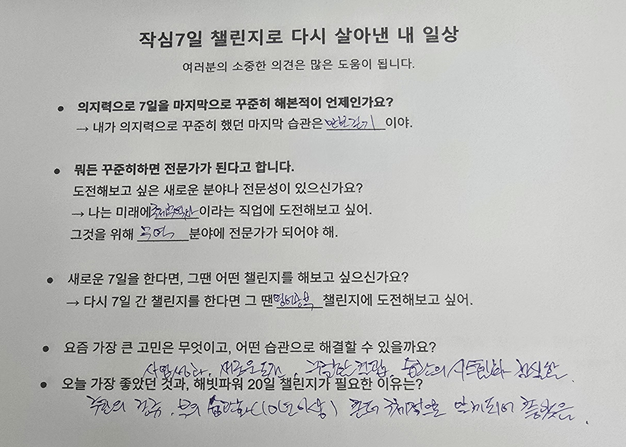 작심7일 챌린지로 다시 살아낸 내 일상
여러분의 소중한 의견은 많은 도움이 됩니다.
● 의지력으로 7일을 마지막으로 꾸준히 해본적이 언제인가요?
→ 내가 의지력으로 꾸준히 했던 마지막 습관은 만보걷기 이야.
● 뭐든 꾸준히하면 전문가가 된다고 합니다.
도전해보고 싶은 새로운 분야나 전문성이 있으신가요?
→ 나는 미래에 이라는 직업에 도전해보고 싶어.
그것을 위해 무역 분야에 전문가가 되어야 해.
● 새로운 7일을 한다면, 그땐 어떤 챌린지를 해보고 싶으신가요?
→ 다시 7일 간 챌린지를 한다면 그 땐 영어공부 챌린지에 도전해보고 싶어.
● 요즘 가장 큰 고민은 무엇이고, 어떤 습관으로 해결할 수 있을까요?
새로운도전,
● 오늘 가장 좋았던 것과, 해빗파워 20일 챌린지가 필요한 이유는?
습관화 (이미 좋았음.